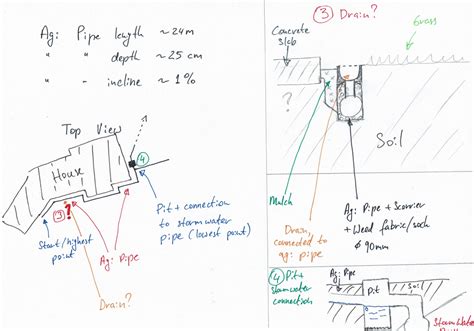 Ag: Pipe length ~ 24m
" " depth ~ 25 cm
" " incline ~ 1%
Top View
House
4
3 ?
Start/highest
point
Ag: Pipe
Pit + connection
to stormwater
pipe (lowest point)
Drain?
3 Drain?
Concrete
Slab
Grass
?
Soil
Mulch
Drain,
connected to
ag: pipe
Ag: Pipe +
+ Weed fabric/sock
ø 90mm
4 Pit +
stormwater
connection
Ag: Pipe
Pit
Soil
Stormwater